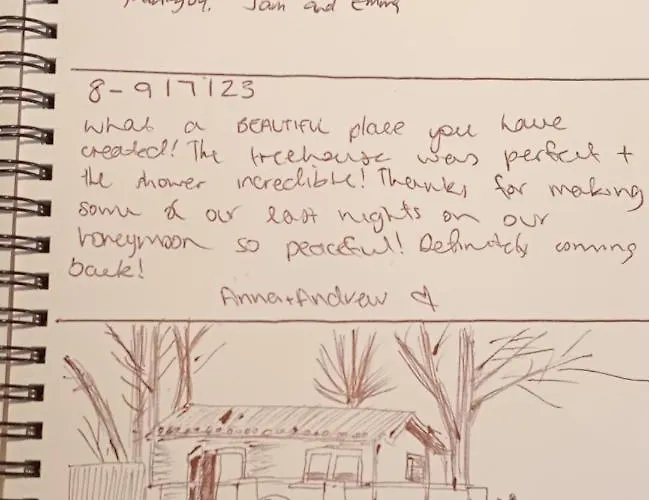 Sam and Emma
8-9/7/23
What a BEAUTIFUL place you have
created! The treehouse was perfect +
the shower incredible! Thanks for making
some of our last nights on our
honeymoon so peaceful! Definitely coming
back!
Anna + Andrew